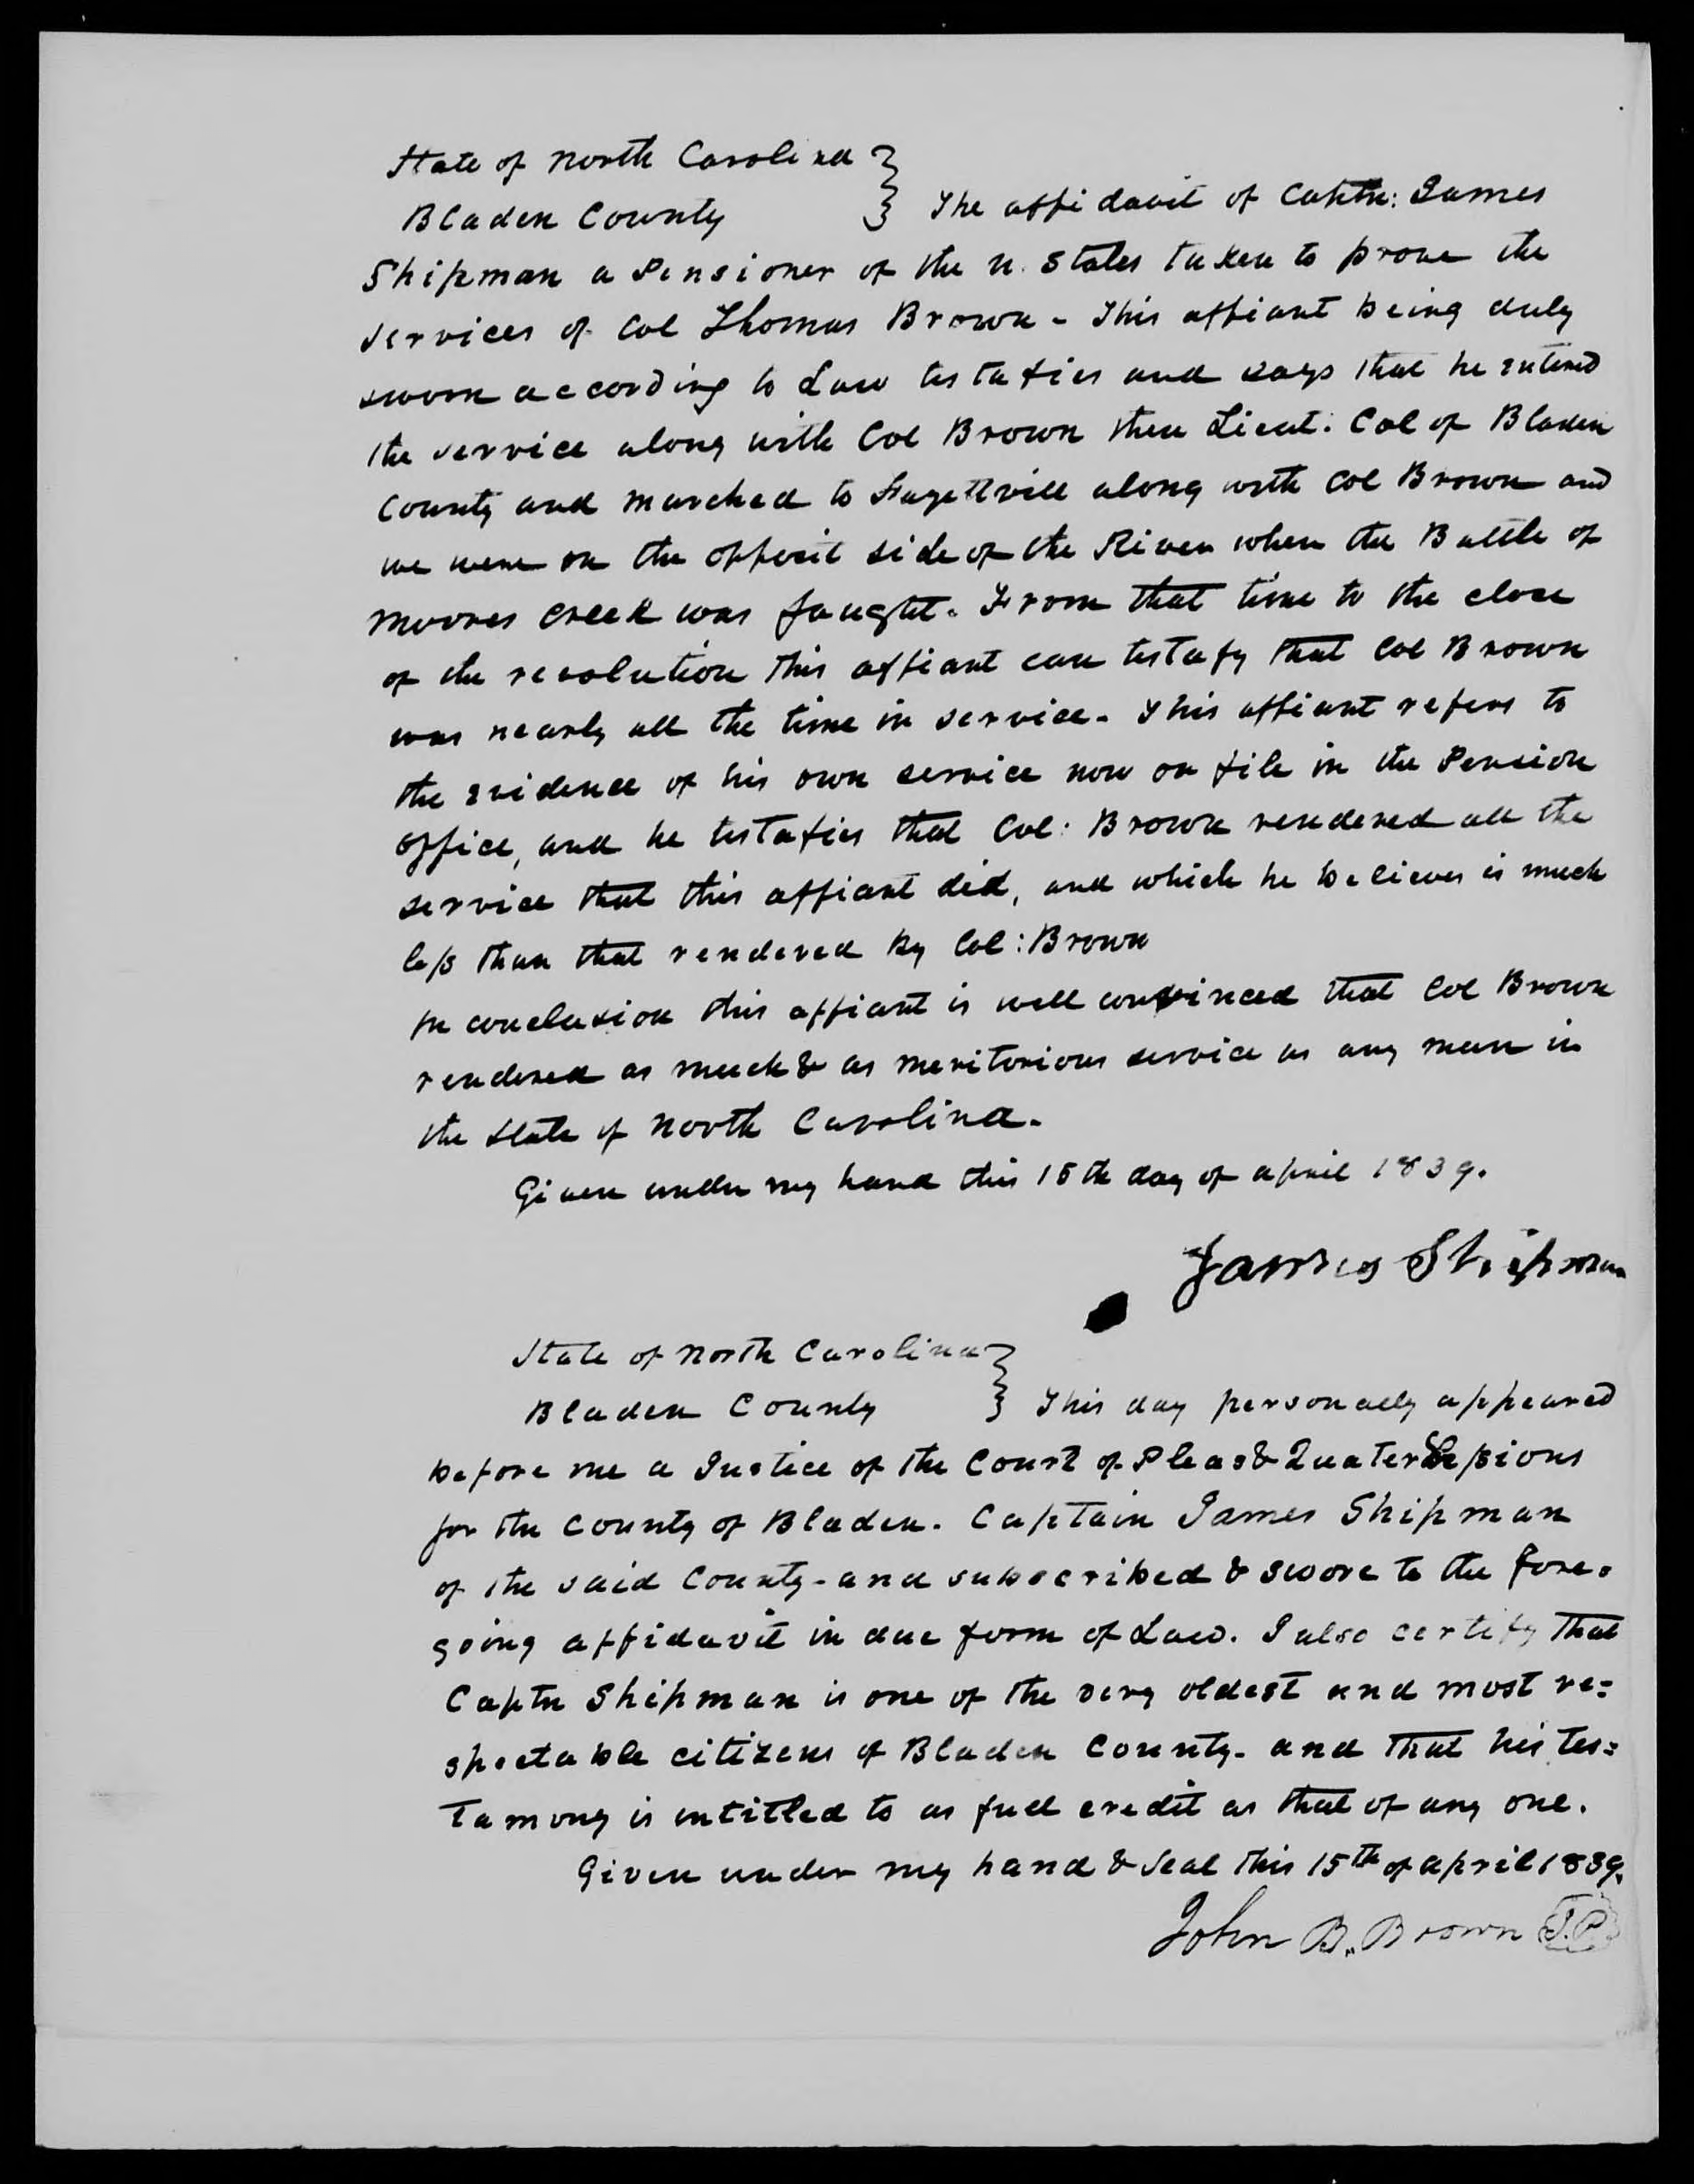 State of North Carolina }
Bladen County } The affidavit of Captn: James
Shipman a Pensioner of the U. States taken to prove the
services of Col Thomas Brown - This affiant being duly
sworn according to Law testafies and says that he entered
the service along with Col Brown then Lieut: Col of Bladen
County and marched to Fayettvill along with Col Brown and
we were on the opposit side of the River when the Battle of
Moores Creek was fought. From that time to the close
of the revolution this affiant can testafy that Col Brown
was nearly all the time in service - This affiant refers to
the evidence of his own service now on file in the Pension
office, and he testafies that Col: Brown rendered all the
service that this affiant did, and which he believes is much
less than that rendered by Col: Brown
In conclusion this affiant is well convinced that Col Brown
rendered as much & as meritorious service as any man in
the State of North Carolina.
Given under my hand this 15th day of april 1839.
James Shipman
State of North Carolina }
Bladen County } This day personally appeared
before me a Justice of the Court of Pleas & Quater Sessions
for the County of Bladen. Captain James Shipman
of the said County - and subscribed & swore to the fore-
going affidavit in due form of Law. I also certify that
Captn Shipman is one of the very oldest and most re=
spectable citizens of Bladen County - and that his tes=
tamony is intitled to as full credit as that of any one.
Given under my hand & seal this 15th of april 1839.
John B. Brown J.P.